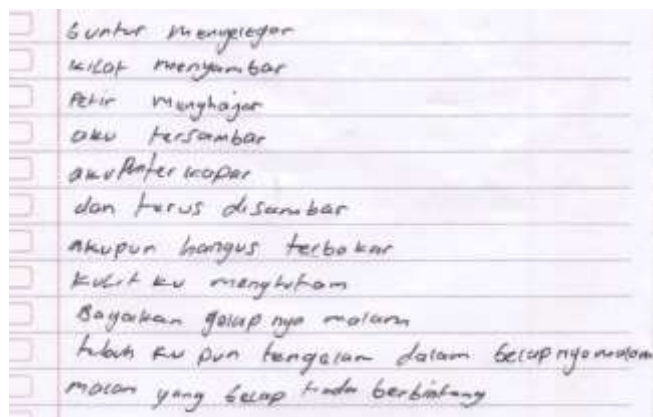 Guntur menyelegar
kilat menyambar
Petir menghajar
aku tersambar
aku terkapar
dan terus disambar
akupun hangus terbakar
kulit ku menghitam
Bagaikan gelap nya malam
tubuh ku pun tengelam dalam gelapnya malam
malam yang gelap tiada berbintang